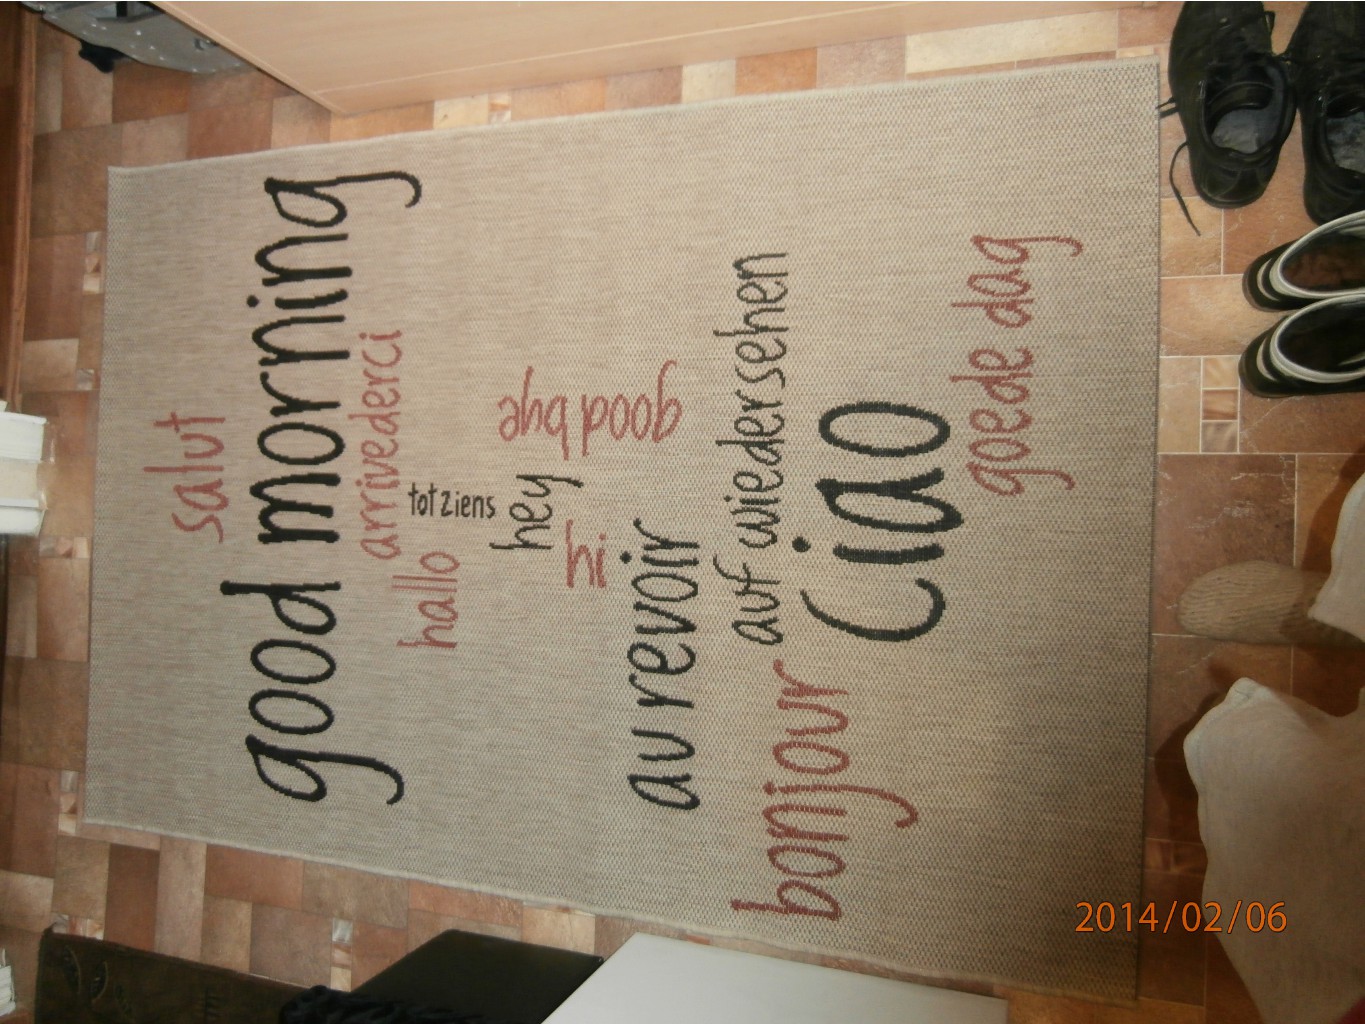 salut
good morning
arrivederci
hallo
tot ziens
hey
good bye
hi
au revoir
auf wiedersehen
bonjour
Ciao
goede dag
2014/02/06